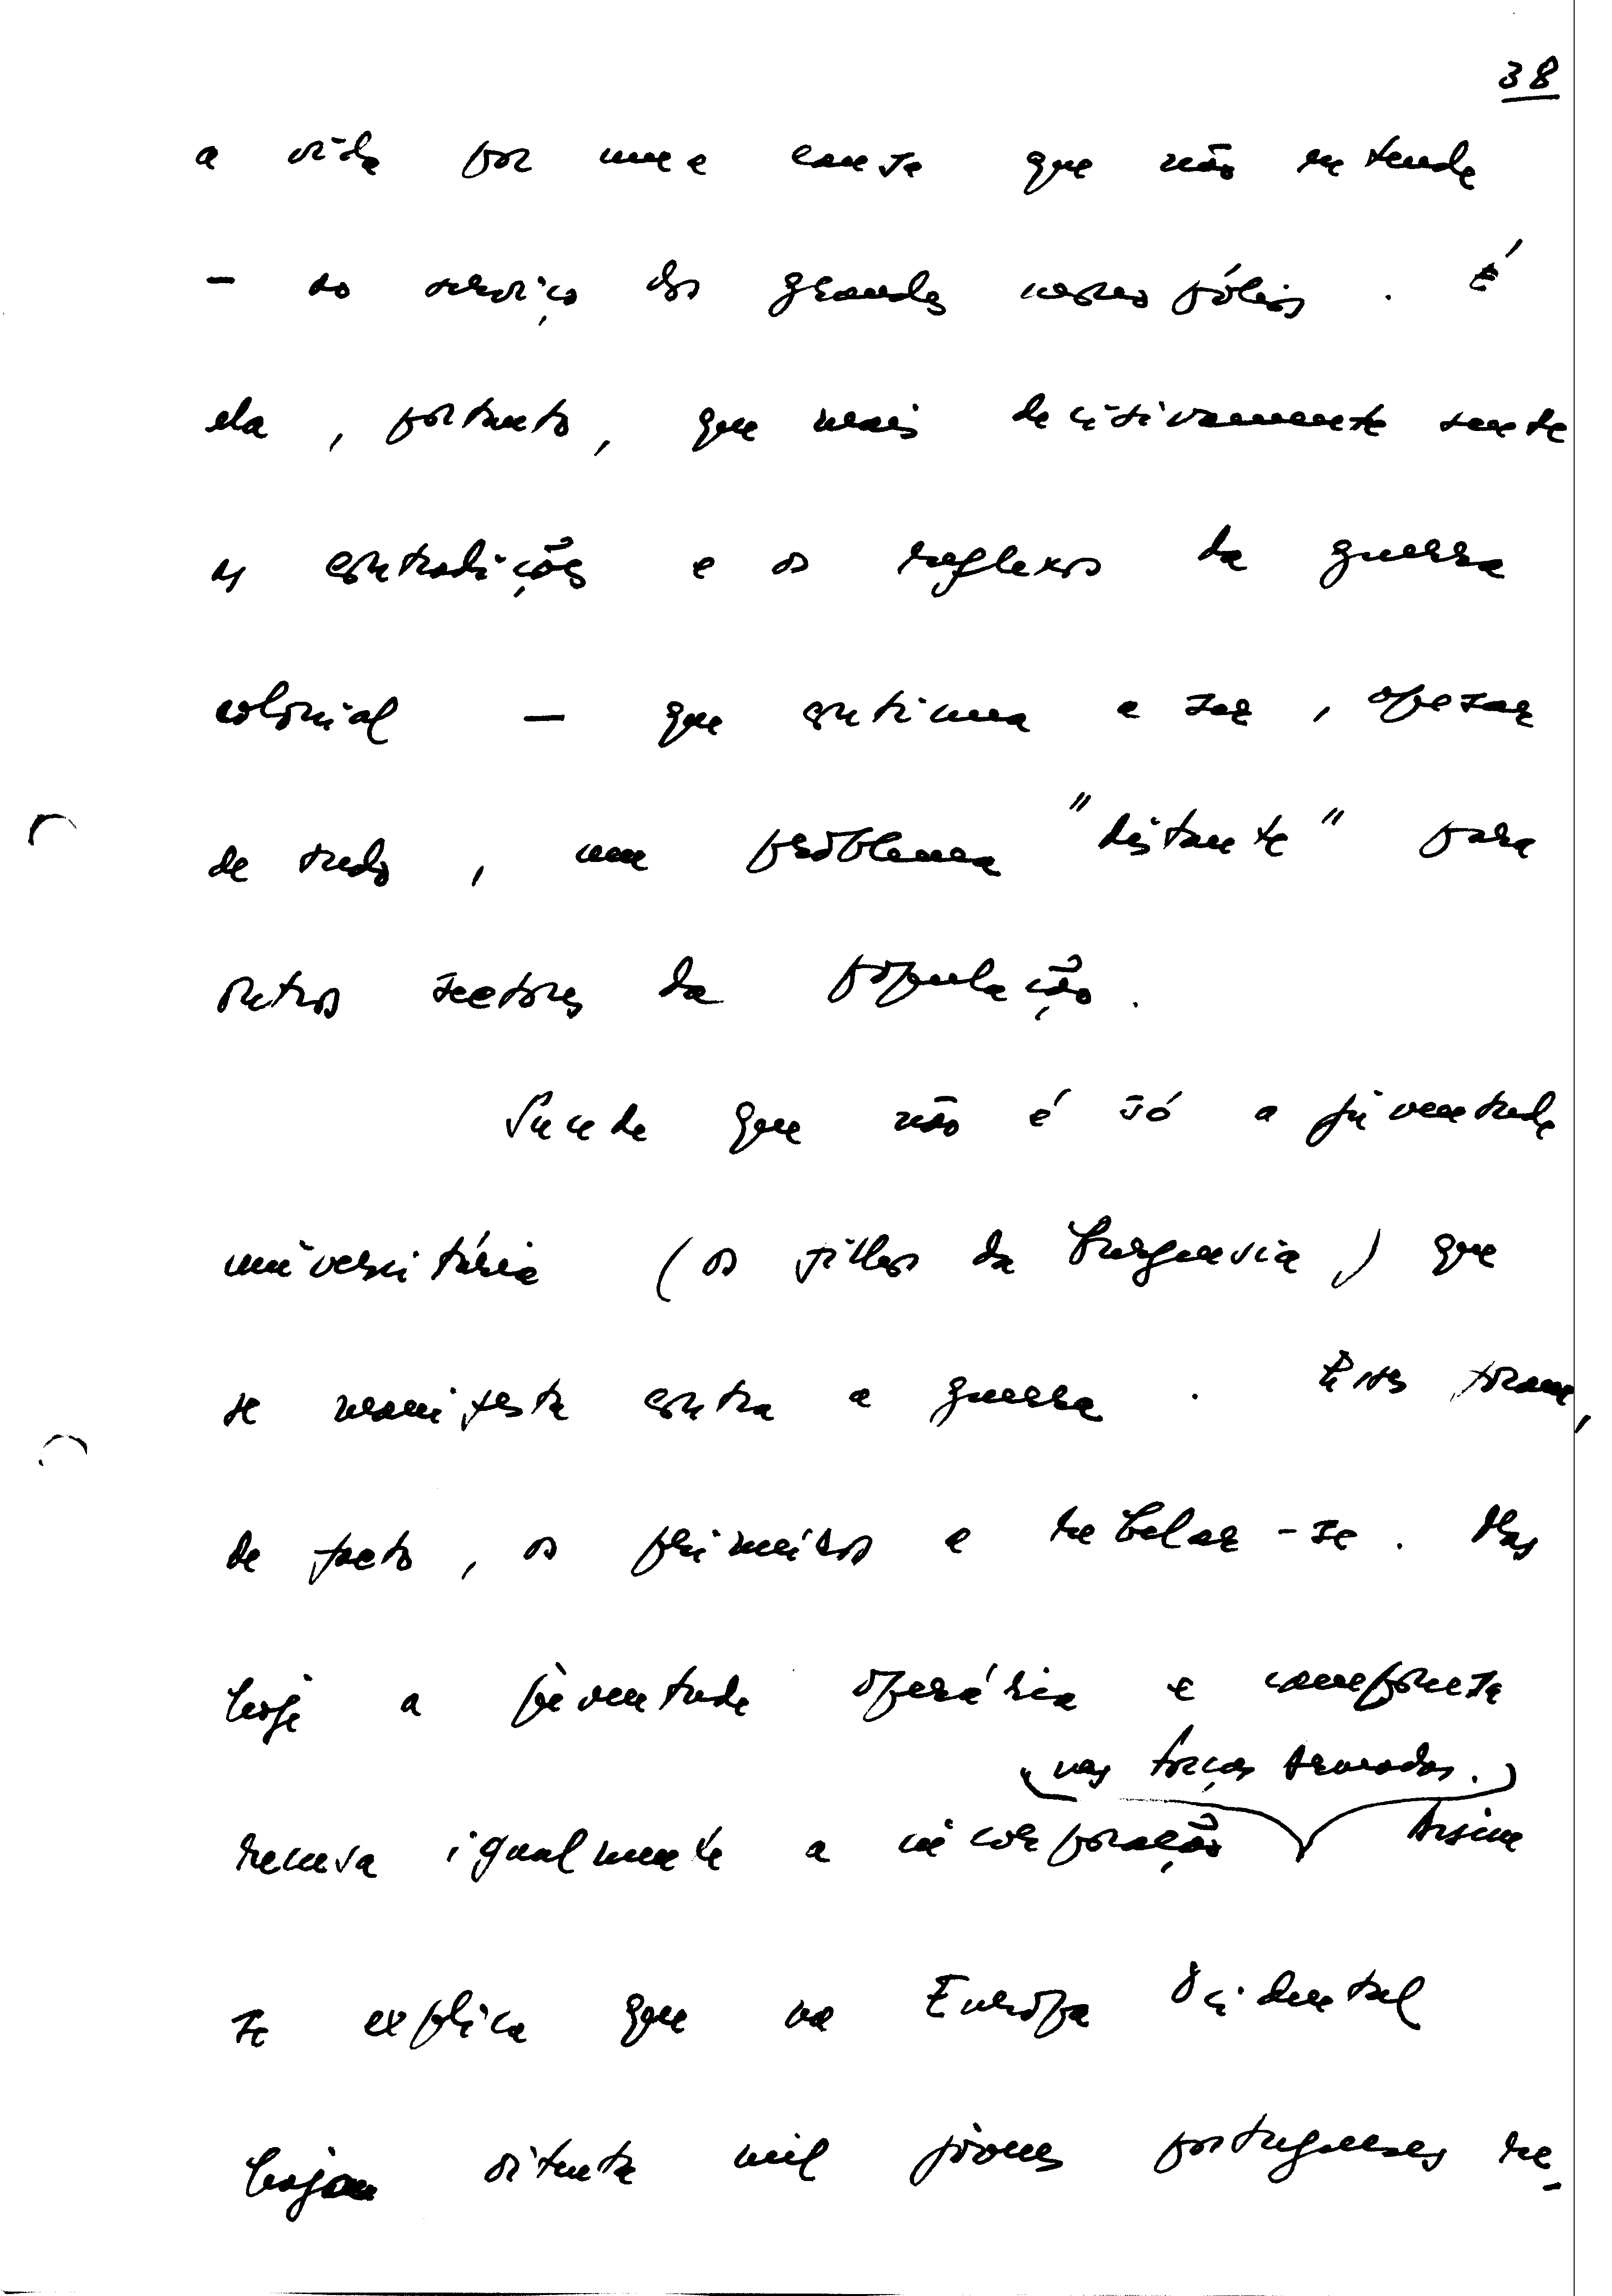 38
a vida por uma causa que não entende
- ao serviço dos grandes monopólios. É
ela, portanto, que mais decisivamente sente
as contradições e os reflexos da guerra
colonial — que continua a ser, apesar
de tudo, um problema "distante" para
outros sectores da população.
Sucede que não é só a juventude
universitária (os filhos da burguesia) que
se manifesta contra a guerra. Estes foram,
de facto, os primeiros a rebelar-se. Mas
hoje a juventude operária e camponesa
(nas forças armadas.)
recusa igualmente a incorporação Assim
se explica que na Europa Ocidental
hajam oitenta mil jovens portugueses re-